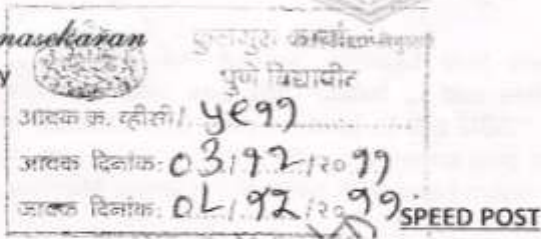 nasekaran कुलगुरू कार्यालय
पुणे विद्यापीठ
आवक क्र. व्हीसी/
आवक दिनांक: ०३/१२/२०११
जावक दिनांक: /१२/२०११ SPEED POST